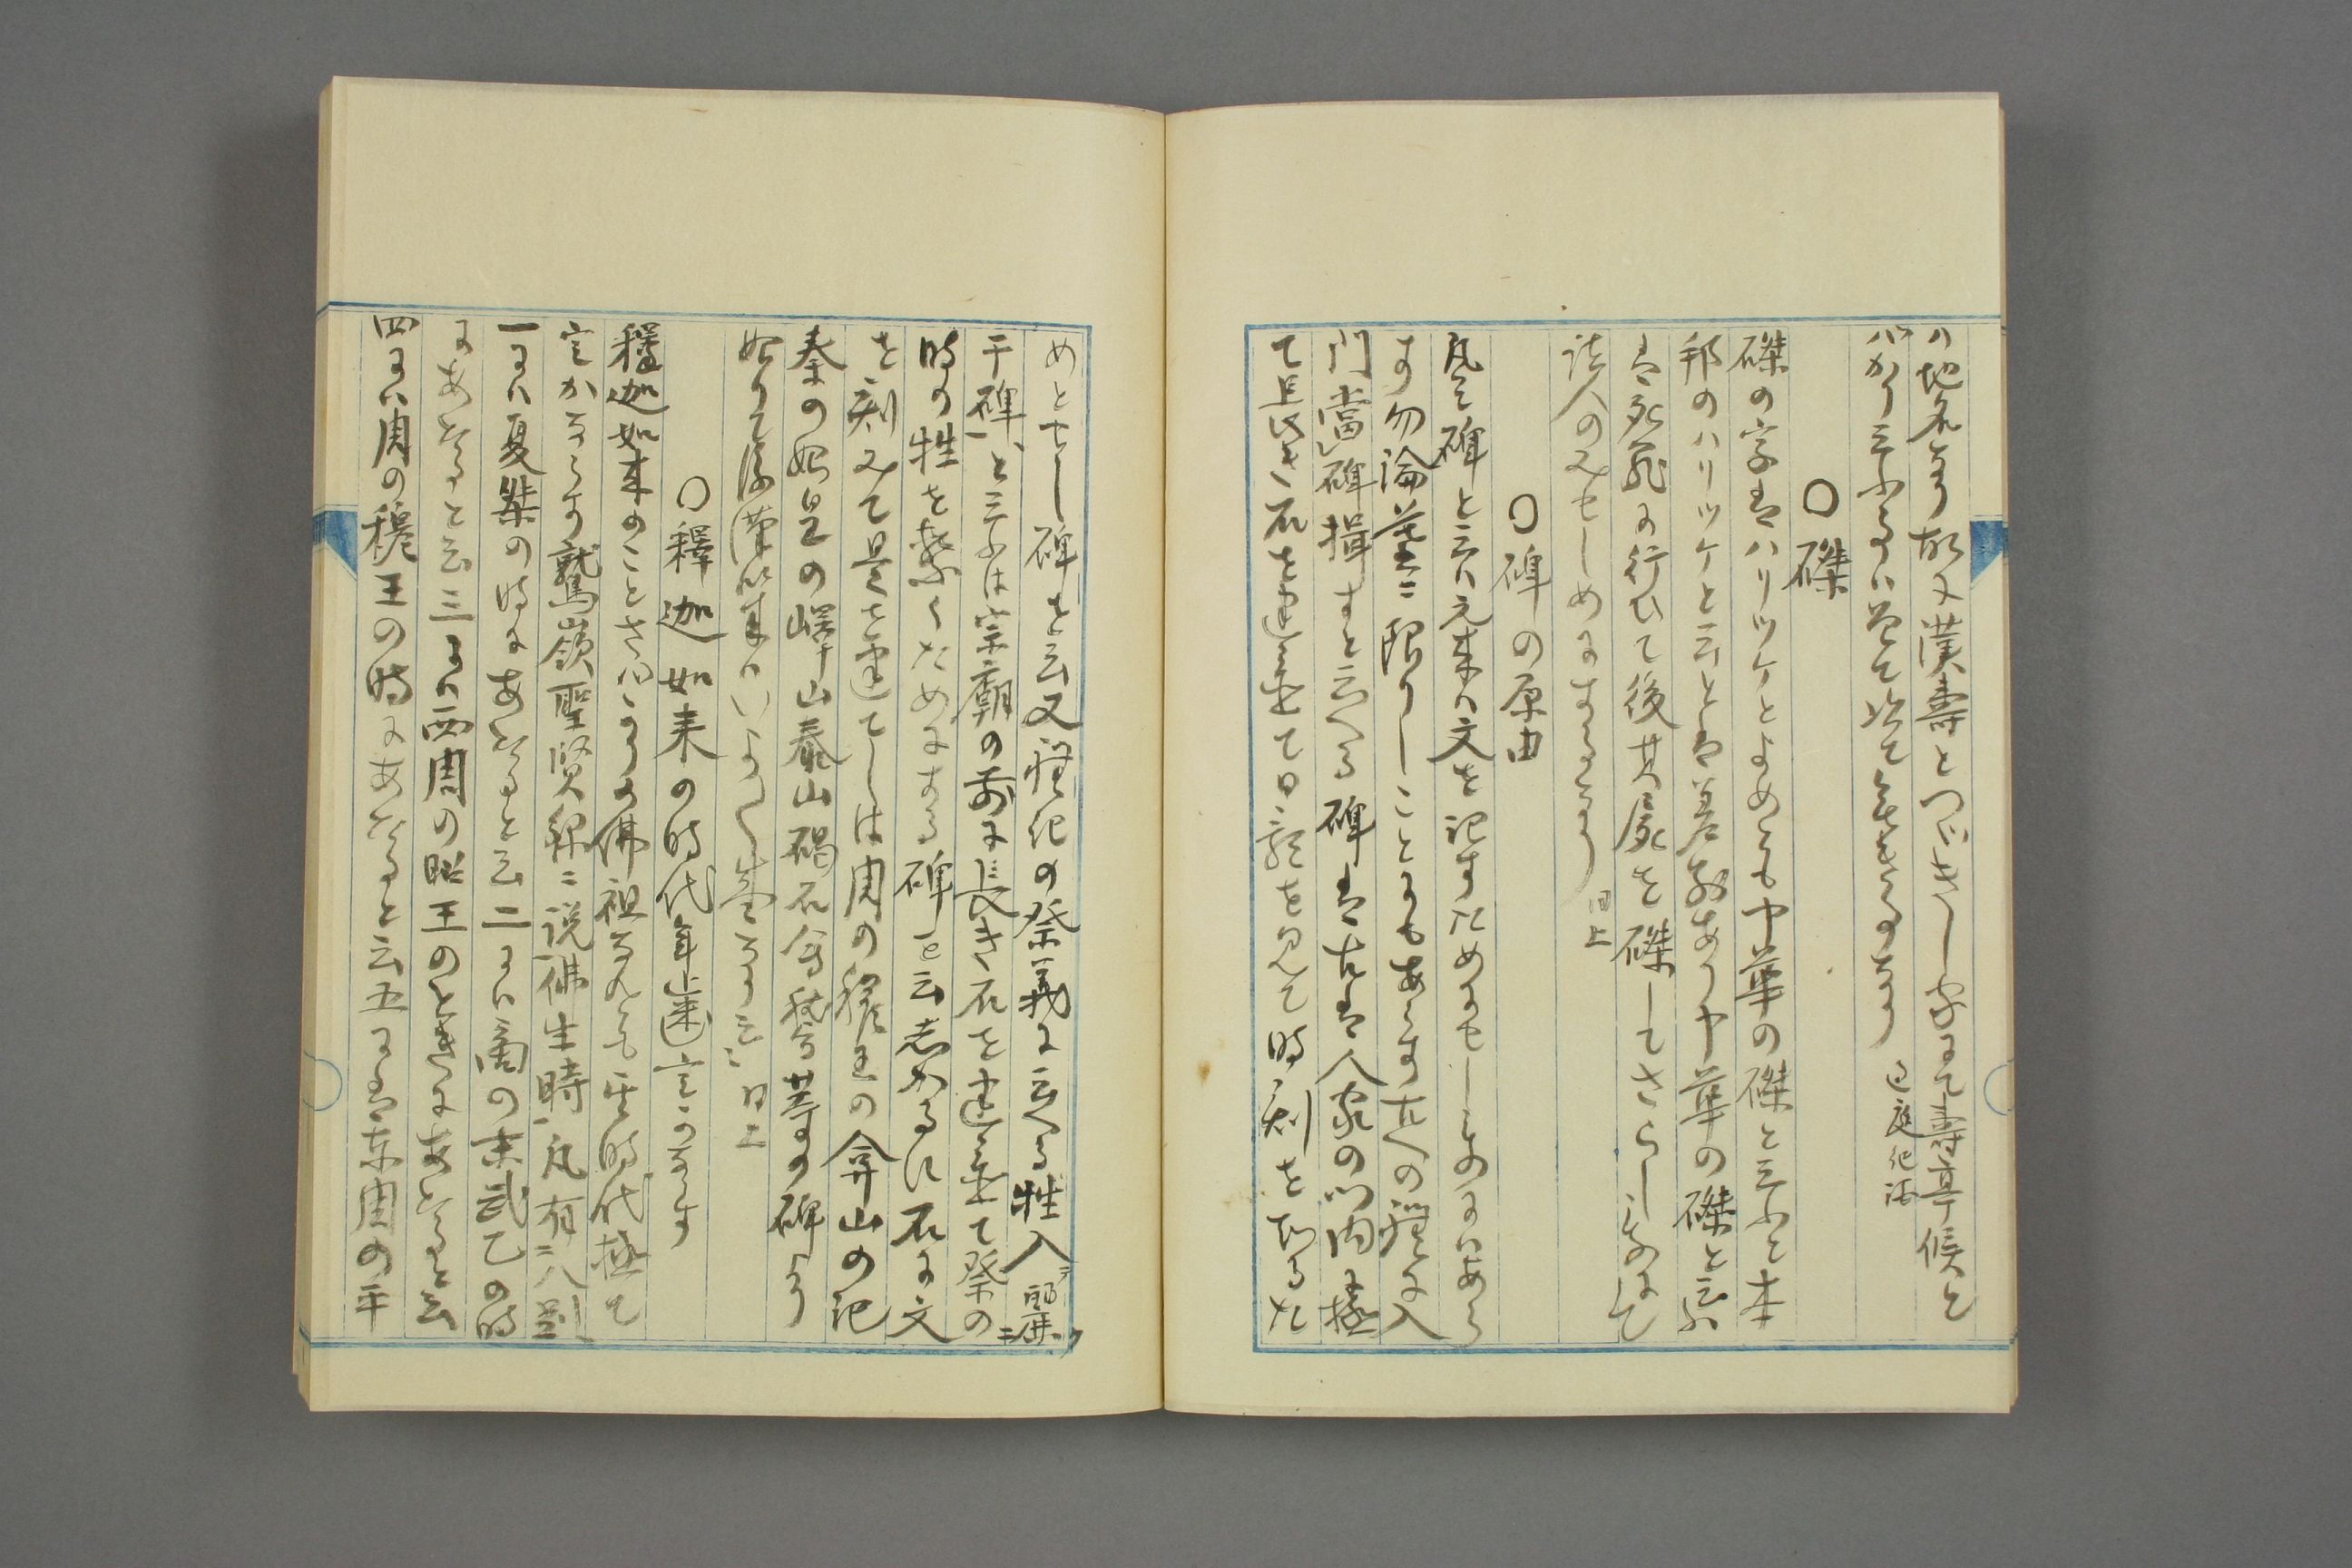 ハ地名なり故に漢寿とつゞきし字にて寿亭候と
バかり云ふるハ
過庭紀談
○磔
磔の字はハリツケとよめとも中華の磔と云ふと本
邦のハリツケと云とは差別あり中華の磔と云ふ
は死罪に行ひて後其屍を磔してさらしものにて
諸人のみせしめにするなり 同上
○碑の原由
凡そ碑と云ハ元来ハ文を記すためにせしものにハあら
す勿論墓に限りしことにもあらす古への禮に入
門當碑揖すと云へる碑は古は人家の門内に極
て長き石を建置て日影を見て時刻を知るた
めとせし碑を云又禮記の祭義に云へる牲入麗
于碑と云ふは宗廟の前に長き石を建置て祭の
時の牲を繋くためにする碑を云しかるに石に文
を刻みて是を建てしは周の穆王の弇山の記
秦の始皇の嶧山泰山碣石會稽等の碑より
始りて後漢以来ハいよ〳〵盛なり云〻 同上
○釋迦如来の時代年歴定かならす
釋迦如来のことさハかりの佛祖なれとも其時代極て
定かならす鷲嶺聖賢録ニ説佛生時凡有八別
一にハ夏桀の時にあたると云二にハ商の末武乙の時
にあたると云三にハ西周の昭王のときにあたると云
四にハ周の穆王の時にあたると云五にハ東周の平